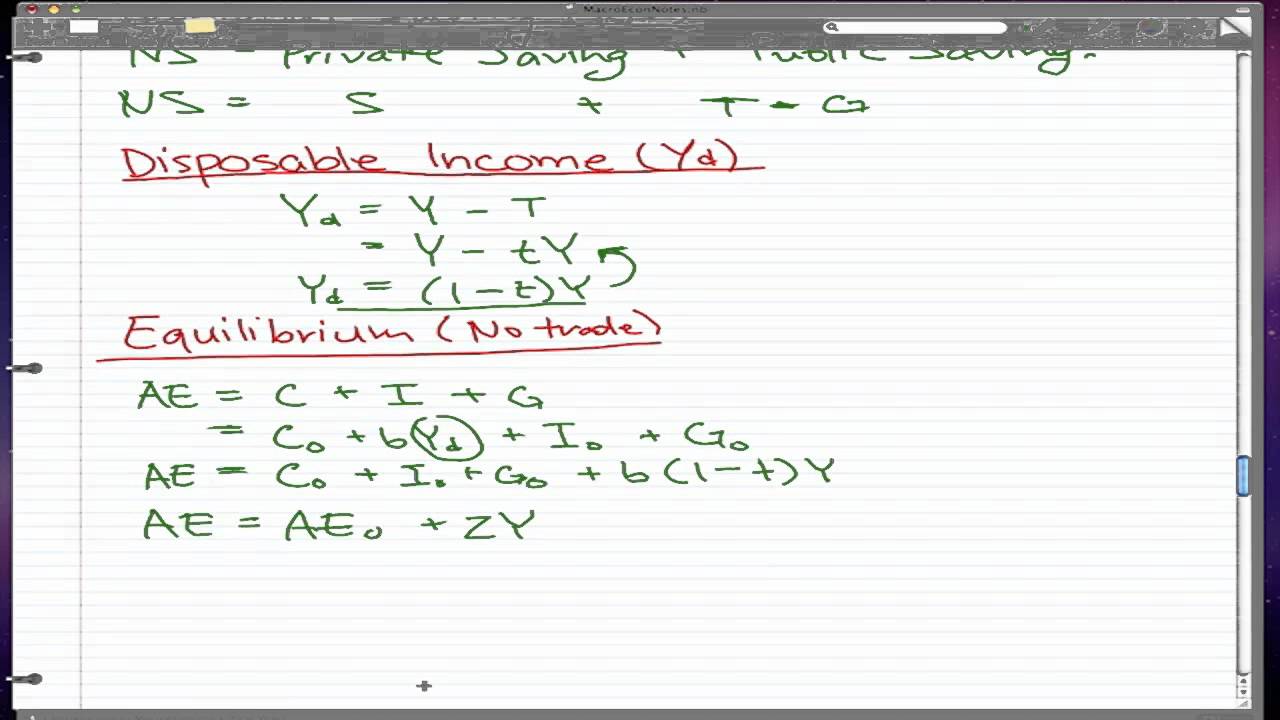 MacroEconNotes.nb
NS = Private Saving + Public Saving.
NS = S + T - G
Disposable Income (Yd)
Yd = Y - T
= Y - tY
Yd = (1-t)Y
Equilibrium (No trade)
AE = C + I + G
= C₀ + b Yd + I₀ + G₀
AE = C₀ + I₀ + G₀ + b(1-t)Y
AE = AE₀ + ZY